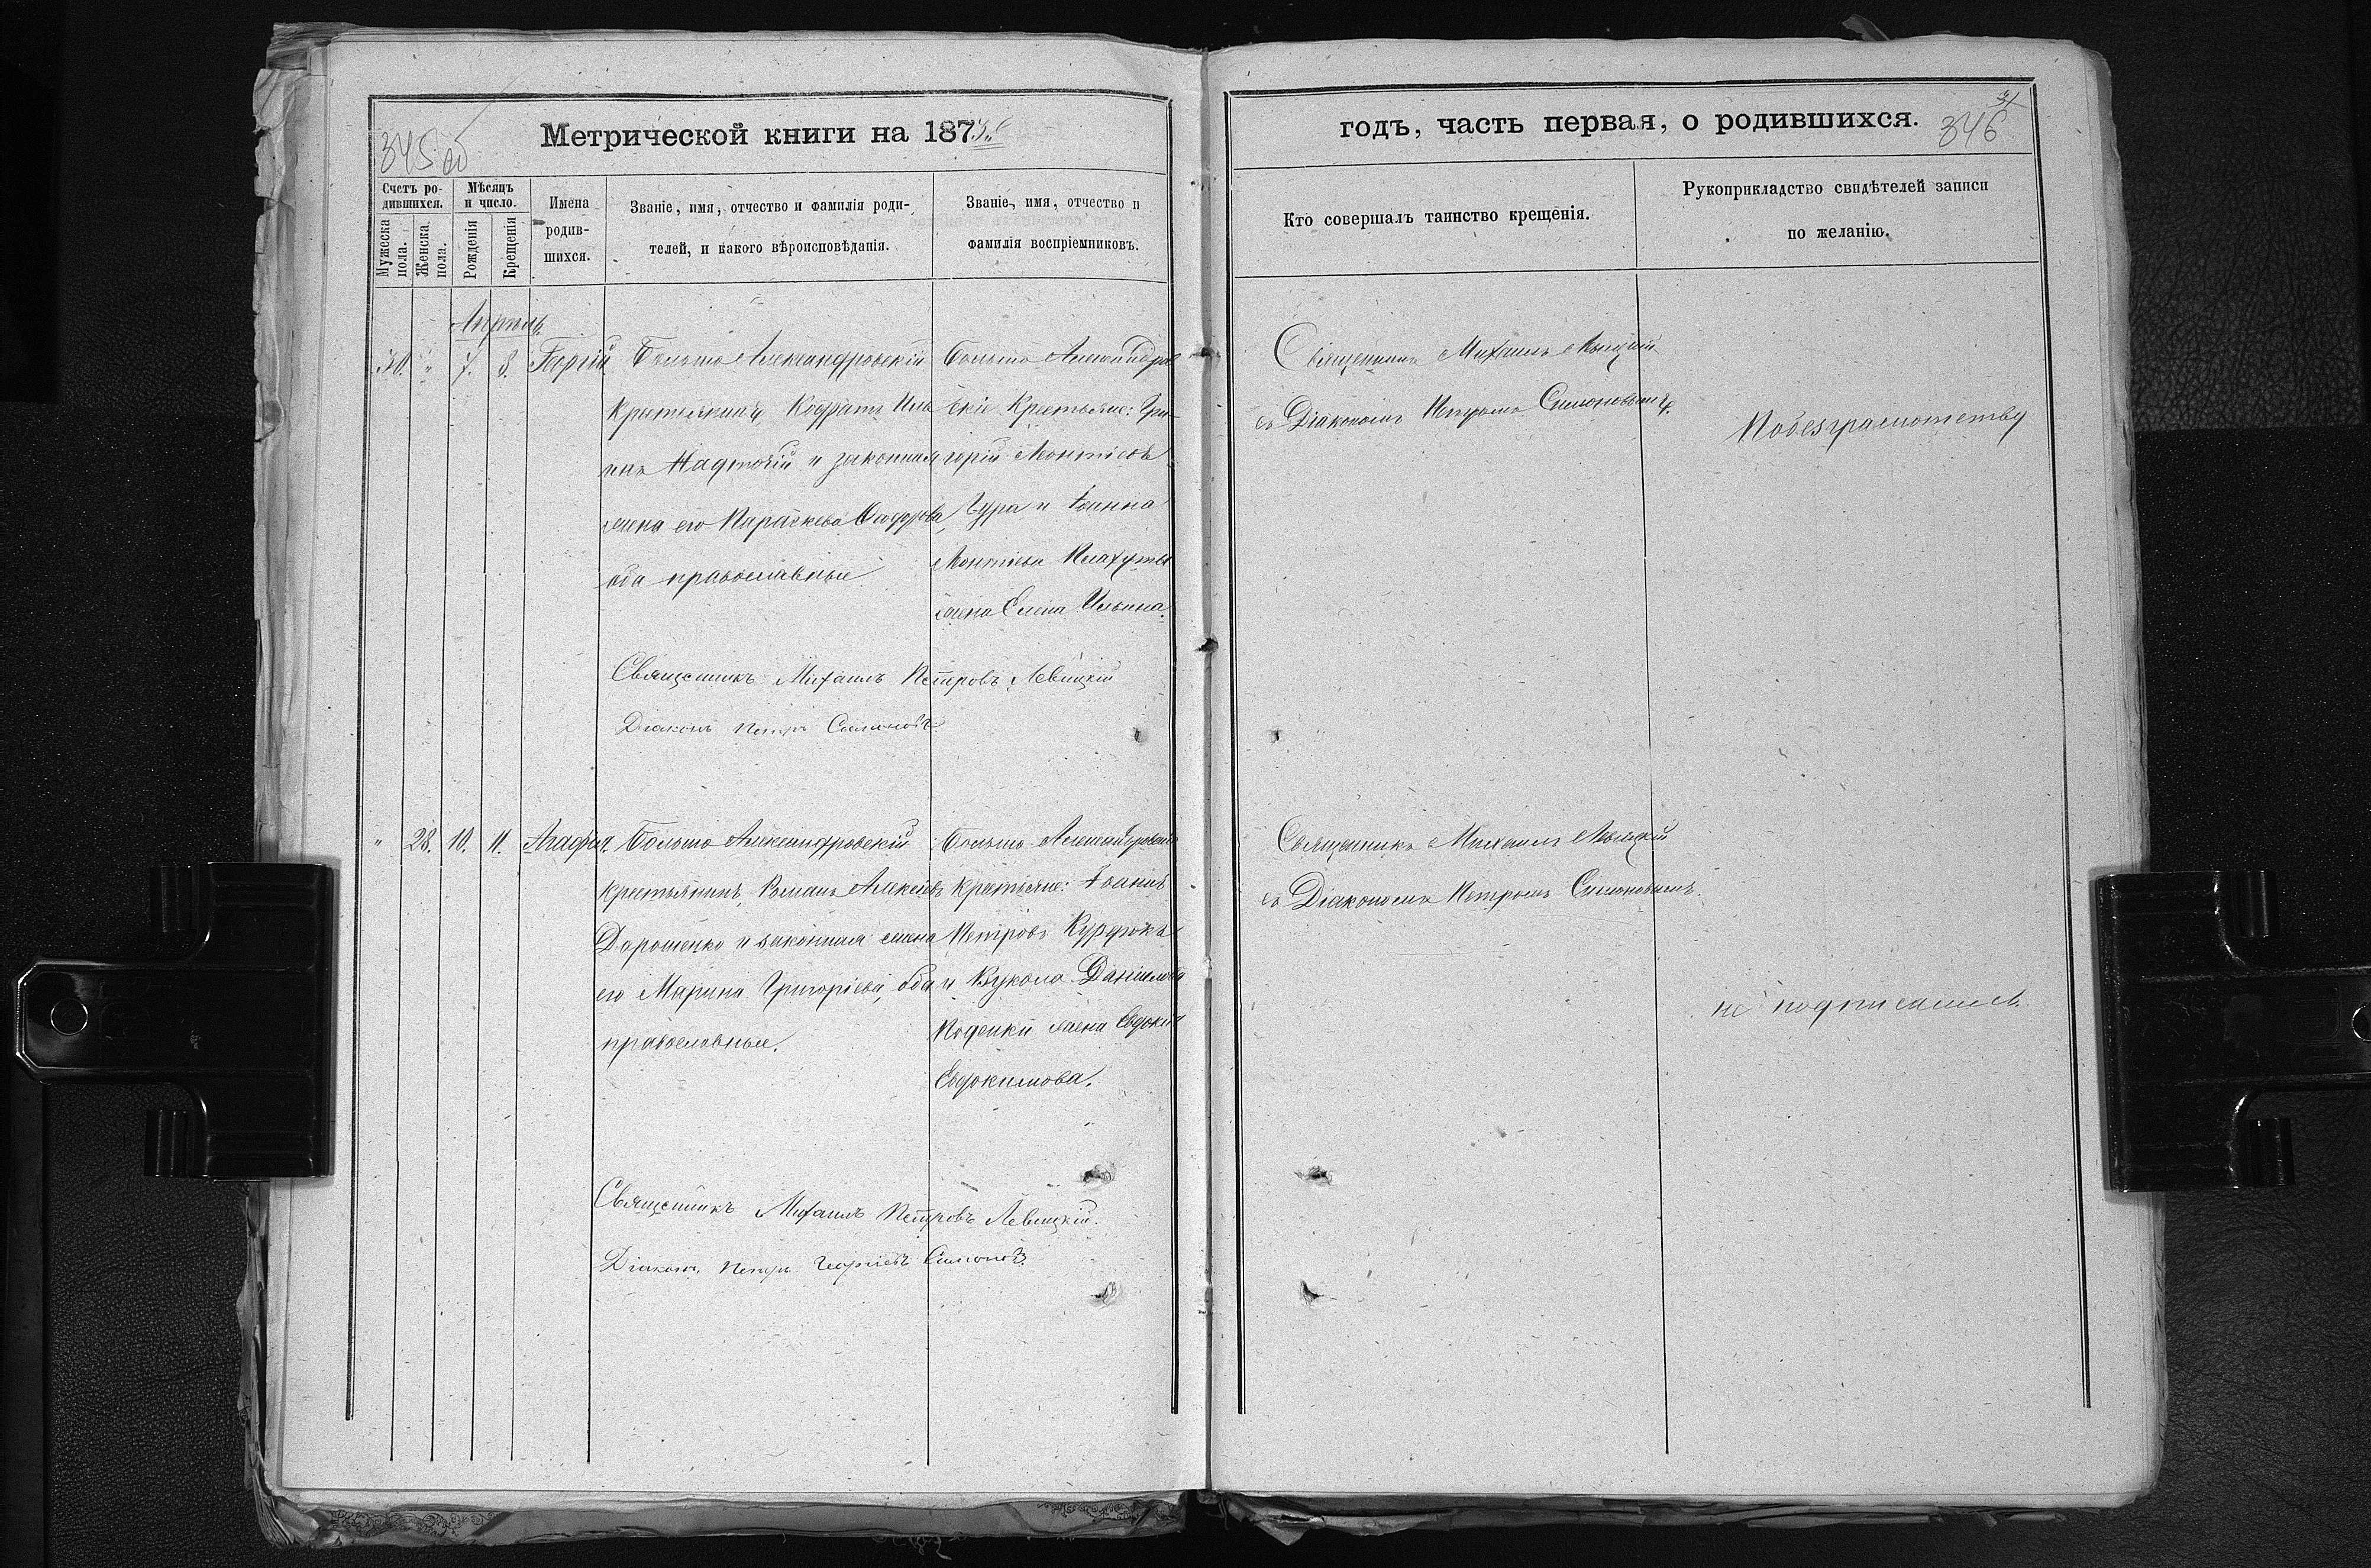 345 об
Метрической книги на 1873й
Счетъ ро-
дившихся.
Мужеска
пола.
Женска.
пола.
Мѣсяцъ
и число.
Рожденія
Крещенія
Имена
родив-
шихся.
Званіе, имя, отчество и фамилія роди-
телей, и какого вѣроисповѣданія.
Званіе, имя, отчество и
фамилія воспріемниковъ.
Апрѣль
30. " 7. 8.
Больше Александровскій
Крестьянинъ, Кодратъ Иль
инъ и законная
жена его Параскева
оба православные
Больше Александров
скіе Крестьяне: Гри-
горій Монтіевъ
Чура и Іоанна
Монтіева Плахуты
жена Елена Ильина.
Священникъ Михаилъ Петровъ Левицкій
Діаконъ Петръ Симоновъ
" 28. 10. 11. Агафія.
Больше Александровскій
крестьянинъ, Романъ Алексѣевъ
Дорошенко и законная жена
его Марина Григоріева, оба
православные.
Больше Александровскіе
крестьяне: Іоаннъ
Петровъ
и Вукола Даніилова
жена Евдокія
Евдокимова.
Священникъ Михаилъ Петровъ Левицкій.
Діаконъ Петръ Георгіевъ Симоновъ.
годъ, часть первая, о родившихся.
31
346
Кто совершалъ таинство крещенія.
Рукоприкладство свидѣтелей записи
по желанію.
Священникъ Михаилъ Левицкій
съ Діакономъ Петромъ Симоновымъ.
По безграмотству
Священникъ Михаилъ Левицкій
съ Діакономъ Петромъ Симоновымъ.
не подписались.